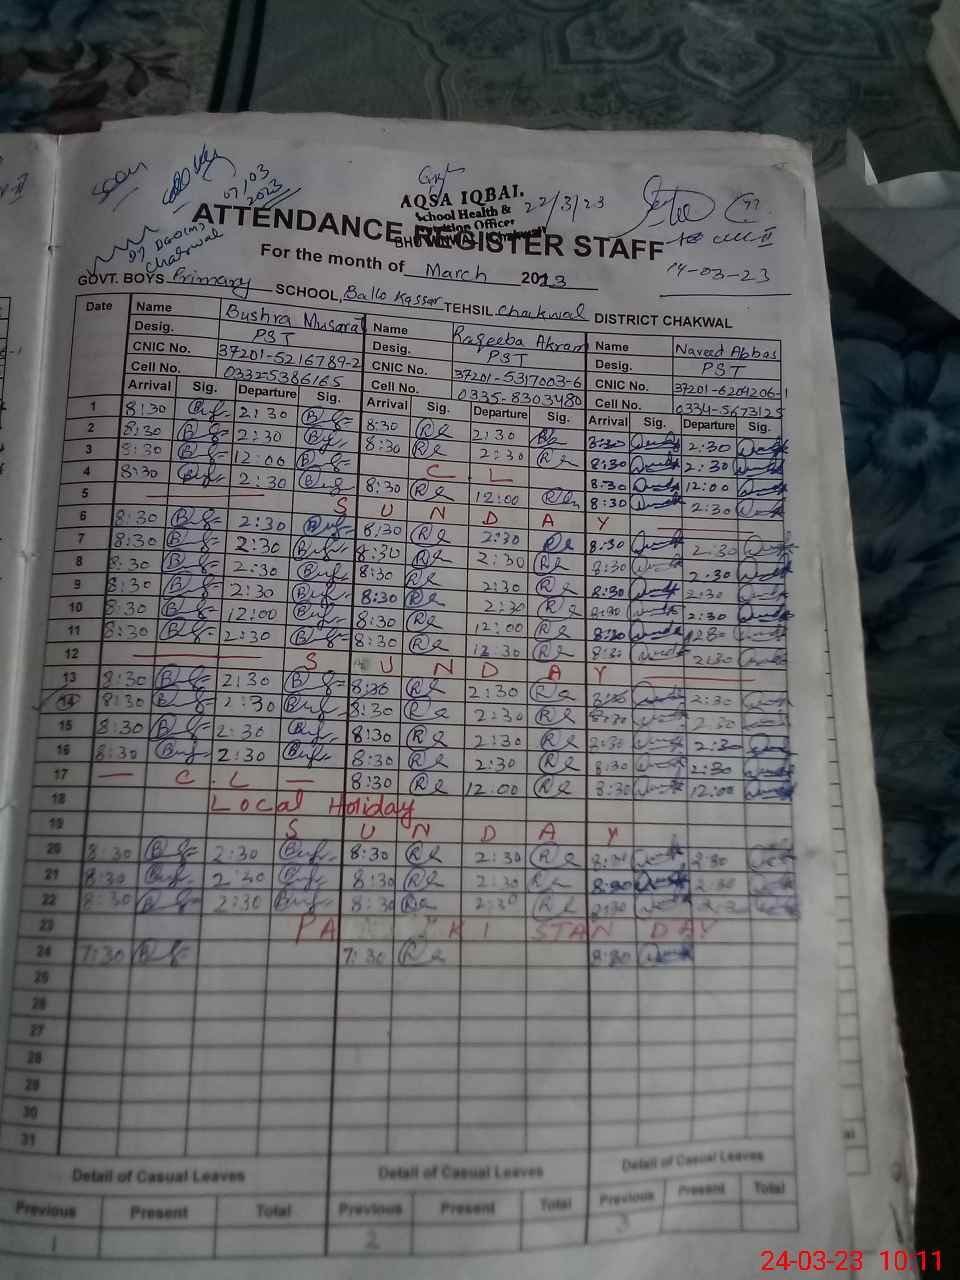 07/03
2023
AQSA IQBAL
School Health &
Officer
22/3/23
ATTENDANCE REGISTER STAFF
Chakwal
14-03-23
For the month of March 2023
GOVT. BOYS Primary SCHOOL, Ballo Kassar TEHSIL Chakwal DISTRICT CHAKWAL
Date Name Bushra Musarat Name Raqeeba Akram Name Naveed Abbas
Desig. PST Desig. PST Desig. PST
CNIC No. 37201-5216789-2 CNIC No. 37201-5317003-6 CNIC No. 37201-6204206-1
Cell No. 0332-5386165 Cell No. 0335-8303480 Cell No. 0334-5673125
Arrival Sig. Departure Sig. Arrival Sig. Departure Sig. Arrival Sig. Departure Sig.
1 8:30 2:30 8:30 2:30 8:30 2:30
2 8:30 2:30 8:30 2:30 8:30 2:30
3 8:30 12:00 C L 8:30 12:00
4 8:30 2:30 8:30 12:00 8:30 2:30
5 S U N D A Y
6 8:30 2:30 8:30 2:30 8:30 2:30
7 8:30 2:30 8:30 2:30 8:30 2:30
8 8:30 2:30 8:30 2:30 8:30 2:30
9 8:30 2:30 8:30 2:30 8:30 2:30
10 8:30 12:00 8:30 12:00 8:30
11 8:30 2:30 8:30 12:30 8:30 2:30
12 S U N D A Y
13 8:30 2:30 8:30 2:30 8:30 2:30
14 8:30 2:30 8:30 2:30 8:30 2:30
15 8:30 2:30 8:30 2:30 8:30 2:30
16 8:30 2:30 8:30 2:30 8:30 2:30
17 — C.L — 8:30 12:00 8:30 12:00
18 Local Holiday
19 S U N D A Y
20 8:30 2:30 8:30 2:30 8:30 2:30
21 8:30 2:30 8:30 2:30 8:30 2:30
22 8:30 2:30 8:30 2:30 8:30
23 PA KI STAN DAY
24 7:30 7:30 8:30
25
26
27
28
29
30
31
Detail of Casual Leaves Detail of Casual Leaves Detail of Casual Leaves
Previous Present Total Previous Present Total Previous Present Total
1 2 3
24-03-23 10:11